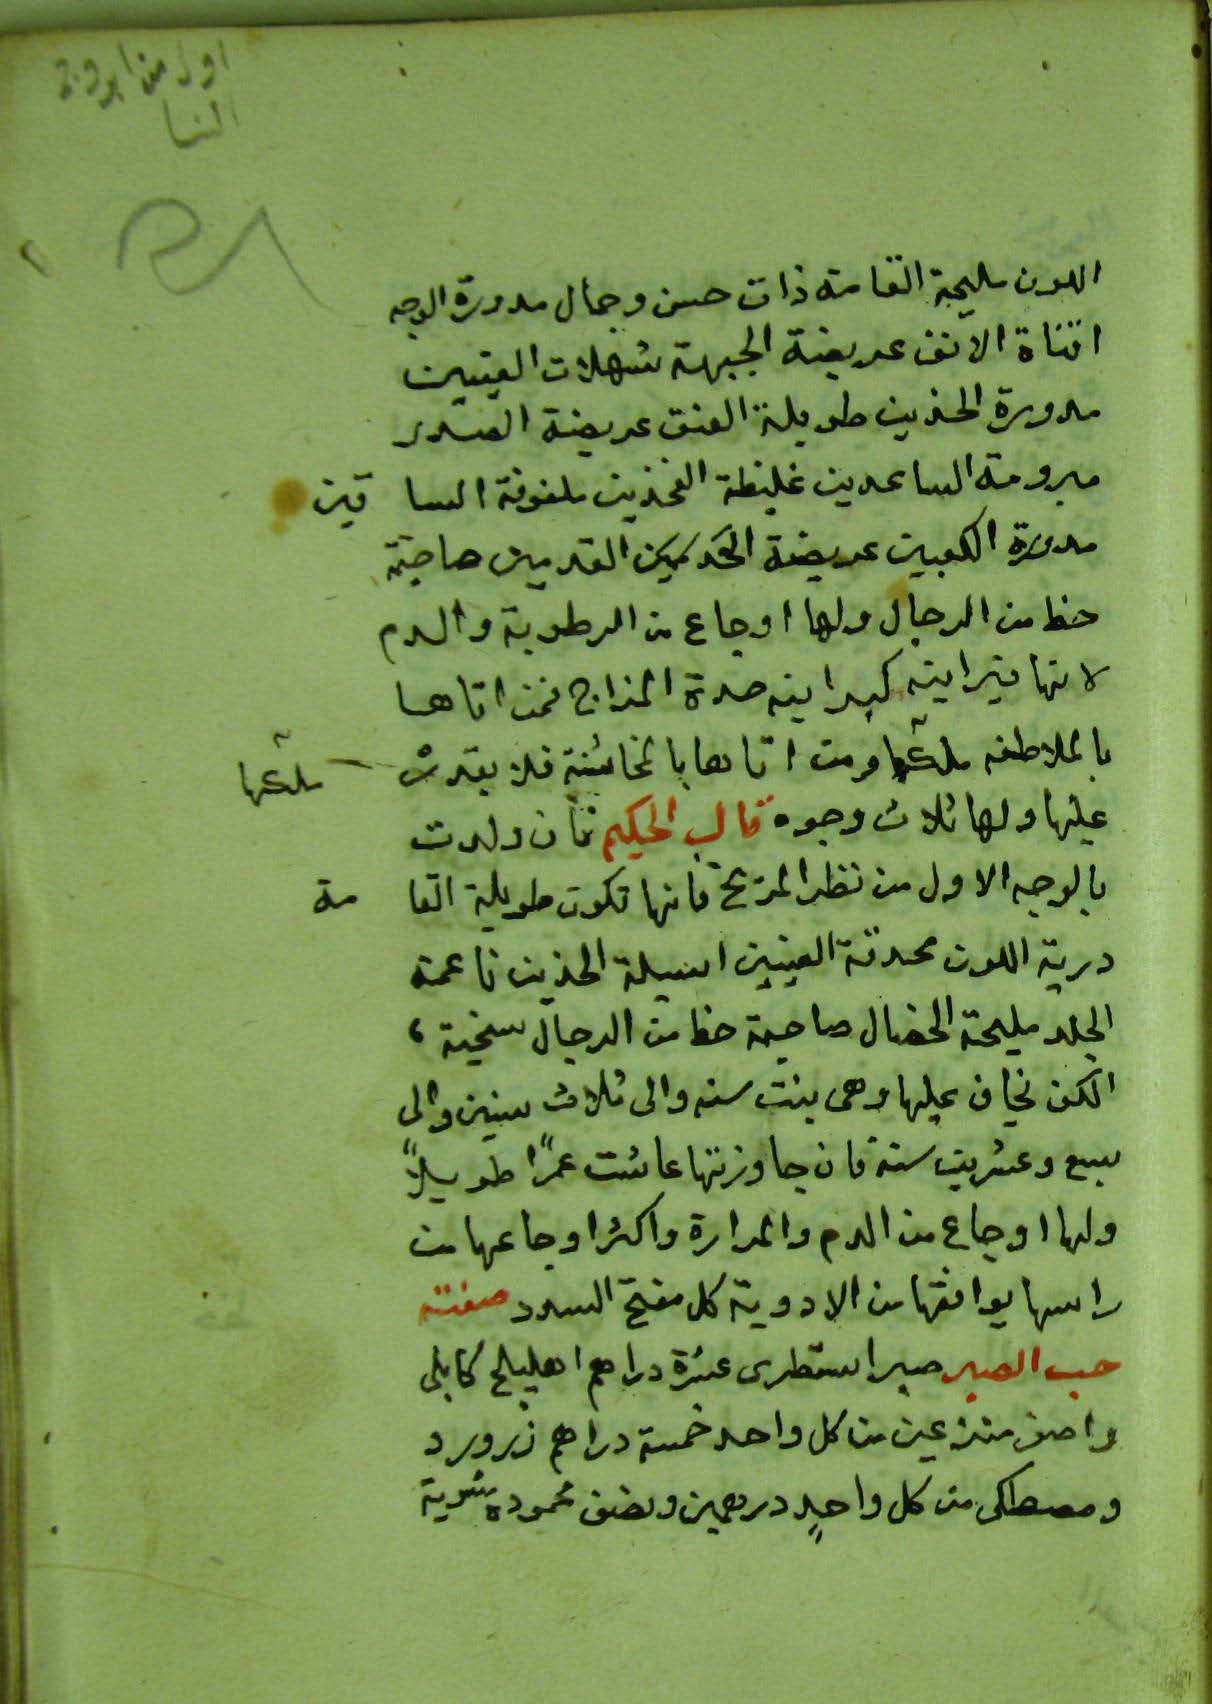 اول من ابروج
النسا
اللون مليحة القامة ذات حسن وجمال مدورة الوجه
اقناة الانف عريضة الجبهة شهلات العينين
مدورة الخدين طويلة العنق عريضة الصدر
مبرومة الساعدين غليظة الفخذين ملفوفة الساقين
مدورة الكعبين عريضة القدمين صاحبة
حظ من الرجال ولها اوجاع من الرطوبة والدم
لانها حدة المزاج فمن اتاها
بالملاطفه ملكها ومن اتاها بالمخاشنة فلا يقدر
ملكها
عليها ولها ثلاث وجوه قال الحكيم فان ولدت
بالوجه الاول من نظر المريخ فانها تكون طويلة القامة
درية اللون محدقة العينين اسيلة الخدين ناعمة
الجلد مليحة الخصال صاحبة حظ من الرجال سخية
الكف نخاف عليها وهى بنت سنه والى ثلاث سنين والى
سبع وعشرين سنة فان جاوزتها عاشت عمرًا طويلاً
ولها اوجاع من الدم والمرارة واكثر اوجاعها من
راسها يوافقها من الادوية كل مفتح السدد صفته
حب الصبر صبر اسقطرى عشرة دراهم اهليلج كابلى
واصفر منزوعين من كل واحد خمسة دراهم زرورد
ومصطكى من كل واحدٍ درهمين ونصف محموده مشوية